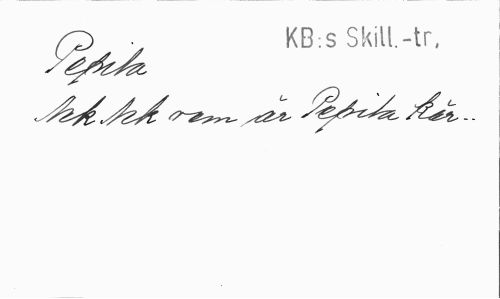 KB:s Skill.-tr,
Pepita
Ack Ack vem är Pepita kär..